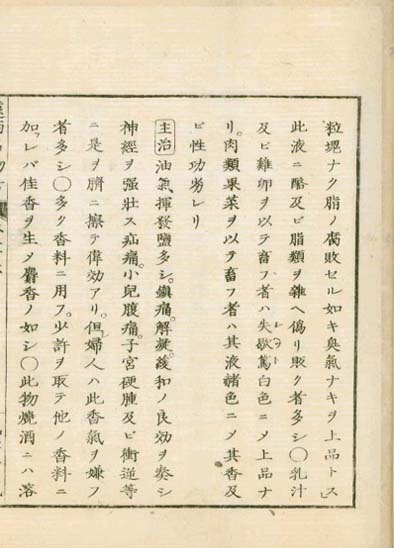 粒堺ナク脂ノ腐敗セル如キ臭氣ナキヲ上品トス」
此液ニ酪及ヒ脂類ヲ雜ヘ偽リ販ク者多シ〇乳汁
及ヒ雞卵ヲ以テ畜フ者ハ失歇篤白色ニメ上品ナ
リ。肉類果菜ヲ以テ畜フ者ハ其液赭色ニメ其香及
ヒ性功劣レリ
主治 油氣揮發鹽多シ。鎮痛。解凝。緩和ノ良効ヲ奏シ
神經ヲ强壮ス疝痛。小兒腹痛。子宮硬腫及ヒ衝逆等
ニ是ヲ臍ニ擦テ偉効アリ。但婦人ハ此香氣ヲ嫌フ
者多シ〇多ク香料ニ用フ。少許ヲ取テ他ノ香料ニ
加レバ佳香ヲ生メ麝香ノ如シ〇此物燒酒ニハ溶